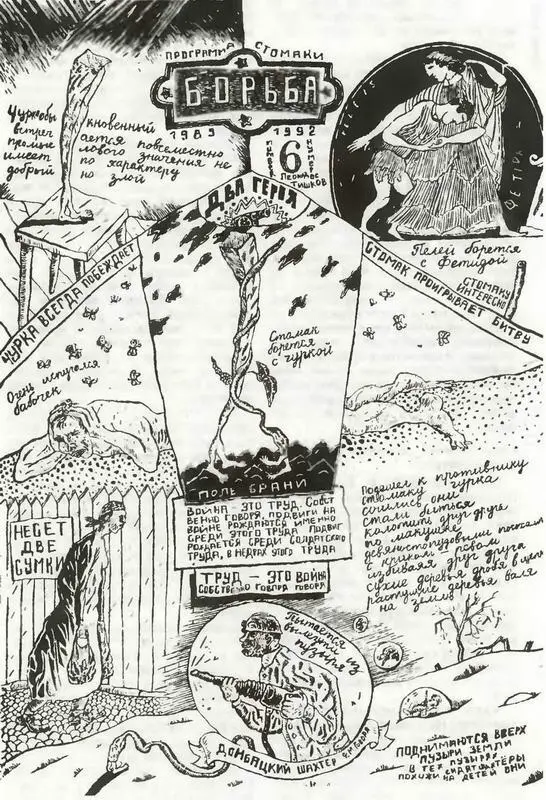 ПРОГРАММА СТОМАКИ
БОРЬБА
1989 1992
6
Леонид
Тишков
Чуркообы
кновенный
встреч
ается повсеместно
промыс
лового значения не
имеет
по характеру
добрый
но злой
ДВА ГЕРОЯ
ПЕЛЕЙ
ФЕТИДА
Пелей борется
с Фетидой
ЧУРКА ВСЕГДА ПОБЕЖДАЕТ
СТОМАК ПРОИГРЫВАЕТ БИТВУ
СТОМАКУ
ИНТЕРЕСНО
Стомак
борется
с чуркой
Очень испугался
бабочек
ПОЛЕ БРАНИ
ВОЙНА – ЭТО ТРУД. СОБСТ
ВЕННО ГОВОРЯ, ПОДВИГИ НА
ВОЙНЕ РОЖДАЮТСЯ ИМЕННО
СРЕДИ ЭТОГО ТРУДА. ПОДВИГ
РОЖДАЕТСЯ СРЕДИ СОЛДАТСКОГО
ТРУДА, В НЕДРАХ ЭТОГО ТРУДА
ТРУД – ЭТО ВОЙНА
СОБСТВЕННО ГОВОРЯ ГОВОРЯ
НЕСЕТ
ДВЕ
СУМКИ
Подошел к противнику
стомаку чурка
сочились они
стали биться
колотить друг друга
по макушке
девяностопудовыми
с криком ревом
избивая друг друга
сухие деревья дробя в щепки
растущие деревья валя
на землю
Пытается
выйти из
пузыря
ДОНБАЦКИЙ ШАХТЕР
ПОДНИМАЮТСЯ ВВЕРХ
ПУЗЫРИ ЗЕМЛИ
В ТЕХ ПУЗЫРЯХ
СИДЯТ ШАХТЁРЫ
ПОХОЖИ НА ДЕТЕЙ ОНИ